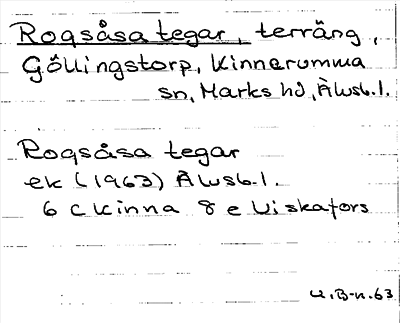 Rogsåsa tegar, terräng,
Göllingstorp, Kinnarumma
sn, Marks hd, Älvsb. l.
Rogsåsa tegar
ek (1963) Älvsb. l.
6 C Kinna 8 e Viskafors
K.B-n. 63